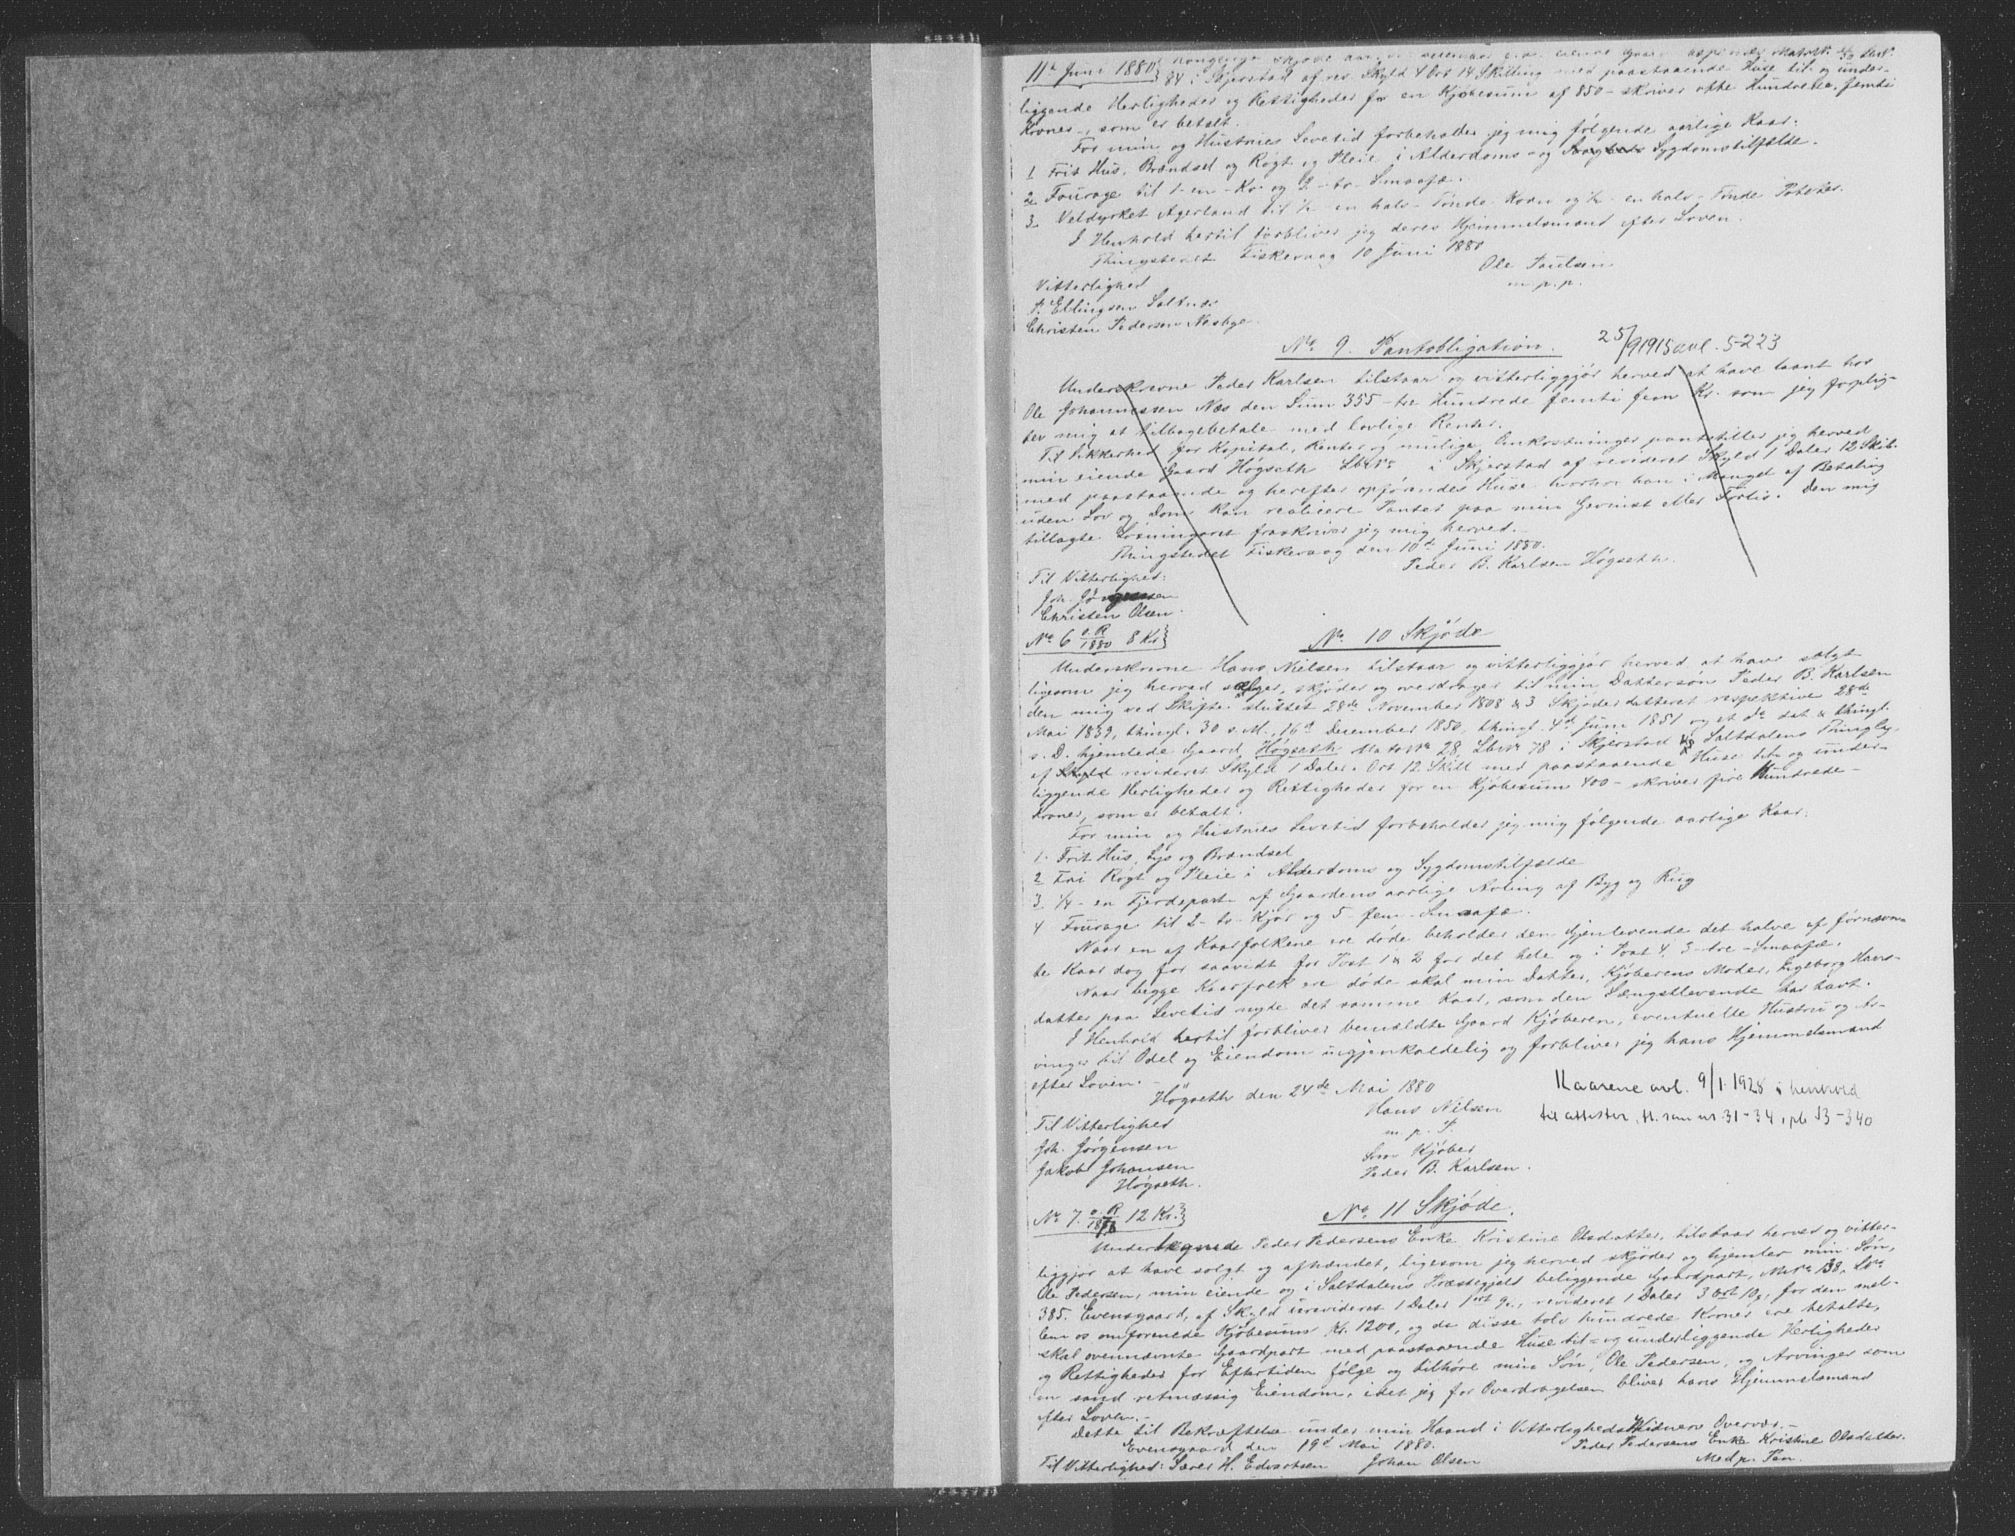 11te Juni 1880
84 i Skjerstad af rev. Skyld 4 Ort 14 Skilling med paastaaende Huse til og under-
liggende Herligheder og Rettigheder for en Kjøbesum af 850 - skriver otte Hundrede femti
Kroner -, som er betalt.
For min og Hustrues Levetid forbeholder jeg mig følgende aarlige Kaar:
1 Frit Hus, Brændsel og Røgt og Pleie i Alderdoms og Sygdomstilfælde.
2 Fourage til 1 - en - Ko og 2 - to - Smaafæ.
3. Veldyrket Agerland til ½ - en halv - Tønde Korn og ½ - en halv - Tønde Poteter.
I Henhold hertil forbliver jeg deres Hjemmelsmand efter Loven.
Thingstedet Fiskevaag 10 Juni 1880
Ole Paulsen
m. p. p.
Vitterlighed
P. Ellingsen Saltnes
Christen Pedersen Nesbye.
No 9. Pantobligation. 25/9 1915 avl. 5-223
Underskrevne Peder Karlsen tilstaar og vitterliggjør herved at have laant hos
Ole Johannessen Næs den Sum 355 - tre Hundrede femti fem Kr. som jeg forplig-
ter mig at tilbagebetale med lovlige Renter.
Til Sikkerhed for Kapital, Renter og mulige Omkostninger pantstiller jeg herved
min eiende Gaard Høgseth LbNr i Skjerstad af revideret Skyld 1 Daler 12 Skill.
med paastaaende og herefter opførendes Huse hvorhos han i Mangel af Betaling
uden Lov og Dom kan realicere Pantet paa min Gevinst eller Forlis. Den mig
tillagte Løsningsret fraskriver jeg mig herved.
Thingstedet Fiskevaag den 10de Juni 1880.
Peder B. Karlsen Høgseth.
Til Vitterlighed:
Joh. Jörgensen
Christen Olsen.
No 6 o.R/1880 8 Kr. No 10 Skjøde
Underskrevne Hans Nielsen tilstaar og vitterliggjør herved at have solgt
ligesom jeg herved sælger, skjøder og overdrager til min Dattersøn Peder B. Karlsen
den mig ved Skifte sluttet 28de November 1808 & 3 Skjøder datteret respektive 28de
Mai 1839, thingl. 30 s. M., 16de December 1850, thingl. 4de Juni 1851 og et do dat & thingl.
s. D. hjemlede Gaard Høgseth MatrNo 28, LbNr 78 i Skjerstad og Saltdalens Thinglag
af revideret Skyld 1 Daler Ort 12 Skill med paastaaende Huse til og under-
liggende Herligheder og Rettigheder for en Kjøbesum 400 - skriver fire Hundrede -
Kroner, som er betalt.
For min og Hustrues Levetid forbeholder jeg mig følgende aarlige Kaar:
1. Frit Hus, Lys og Brændsel
2 Fri Røgt og Pleie i Alderdoms og Sygdomstilfælde
3. ¼ - en Fjerdepart af Gaardens aarlige Avling af Byg og Rug
4 Fourage til 2 - to - Kjør og 5 - fem - Smaafæ.
Naar en af Kaarfolkene ere døde beholder den gjenlevende det halve af førnævn-
te Kaar dog for saavidt for Post 1 & 2 for det hele og i Post 4, 3 - tre - Smaafæ.
Naar begge Kaarfolk ere døde skal min Datter, Kjøberens Moder, Ingeborg Hans-
datter paa Levetid nyde det samme Kaar, som den Længstlevende har havt.
I Henhold hertil forbliver bemældte Gaard Kjøberen, eventuelle Hustru og Ar-
vinger til Odel og Eiendom uigjenkaldelig og forbliver jeg hans Hjemmelsmand
efter Loven. -
Høgseth den 24de Mai 1880
Hans Nilsen
m. p. P.
Kaarene avl. 9/1. 1928 i henhold
til attester, tl. som nr 31-34, pb 13-340
Til Vitterlighed
Joh. Jørgensen
Jakob Johansen
Høgseth.
Som Kjøber
Peder B. Karlsen.
No 7. o.R 12 Kr. No 11 Skjøde.
Undertegnede Peder Pedersens Enke Kristine Olsdatter, tilstaar herved og vitter-
liggjør at have solgt og afhændet, ligesom jeg herved skjøder og hjemler min Søn,
Ole Pedersen, min eiende og i Saltdalens Præstegjeld beliggende Gaardpart, MNo 138, LNo
385. Evensgaard, af Skyld urevideret 1 Daler 1 ort 9 s., revideret 1 Daler 3 ort 10 s, for den mel-
lem os omforenede Kjøbesum Kr. 1200, og da disse tolv hundrede Kroner ere betalte,
skal ovennævnte Gaardpart med paastaaende Huse til- og underliggende Herligheder
og Rettigheder for Eftertiden følge og tilhøre min Søn, Ole Pedersen, og Arvinger som
en sand retmæssig Eiendom, idet jeg for Overdragelsen bliver hans Hjemmelsmand
efter Loven. -
Dette til Bekræftelse under min Haand i Vitterligheds Vidners Overvær. -
Evensgaard den 19de Mai 1880.
Peder Pedersens Enke Kristine Olsdatter.
Med p. Pen.
Til Vitterlighed: Søren H. Edvartsen Johan Olsen